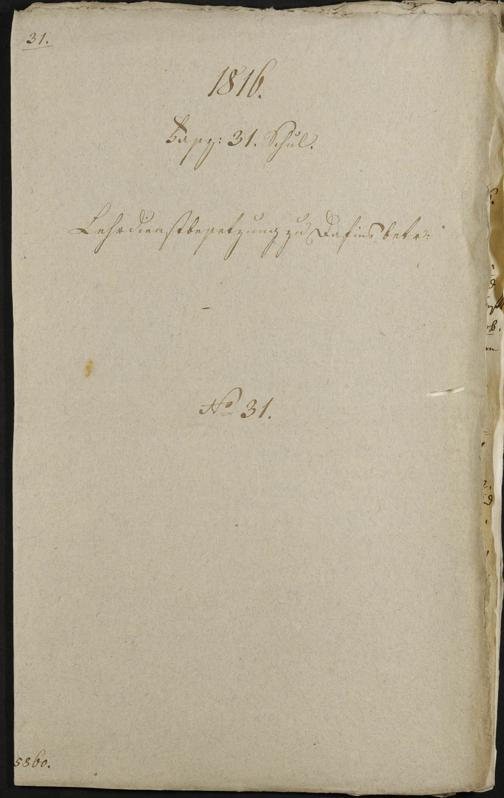 31.
1816.
31. Schul.
Lehrdienstbesetzung zu Dafins betr:
No 31.
5860.